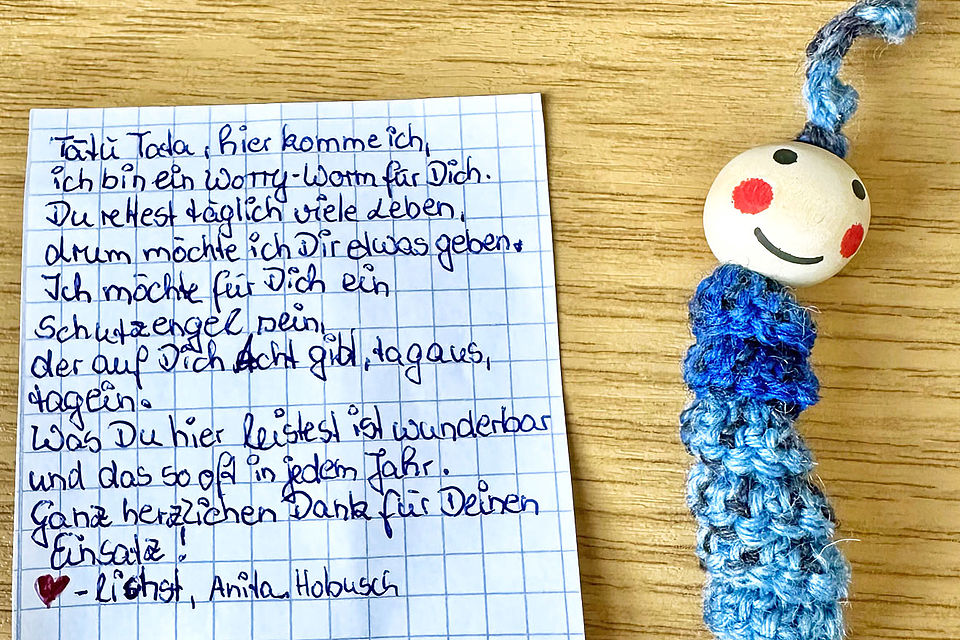 Tatü Tata, hier komme ich,
ich bin ein Worry-Worm für Dich.
Du rettest täglich viele Leben,
drum möchte ich Dir etwas geben.
Ich möchte für Dich ein
Schutzengel sein,
der auf Dich Acht gibt, tagaus,
tagein.
Was Du hier leistest ist wunderbar
und das so oft in jedem Jahr.
Ganz herzlichen Dank für Deinen
Einsatz!
♥-lichst, Anita Hobusch